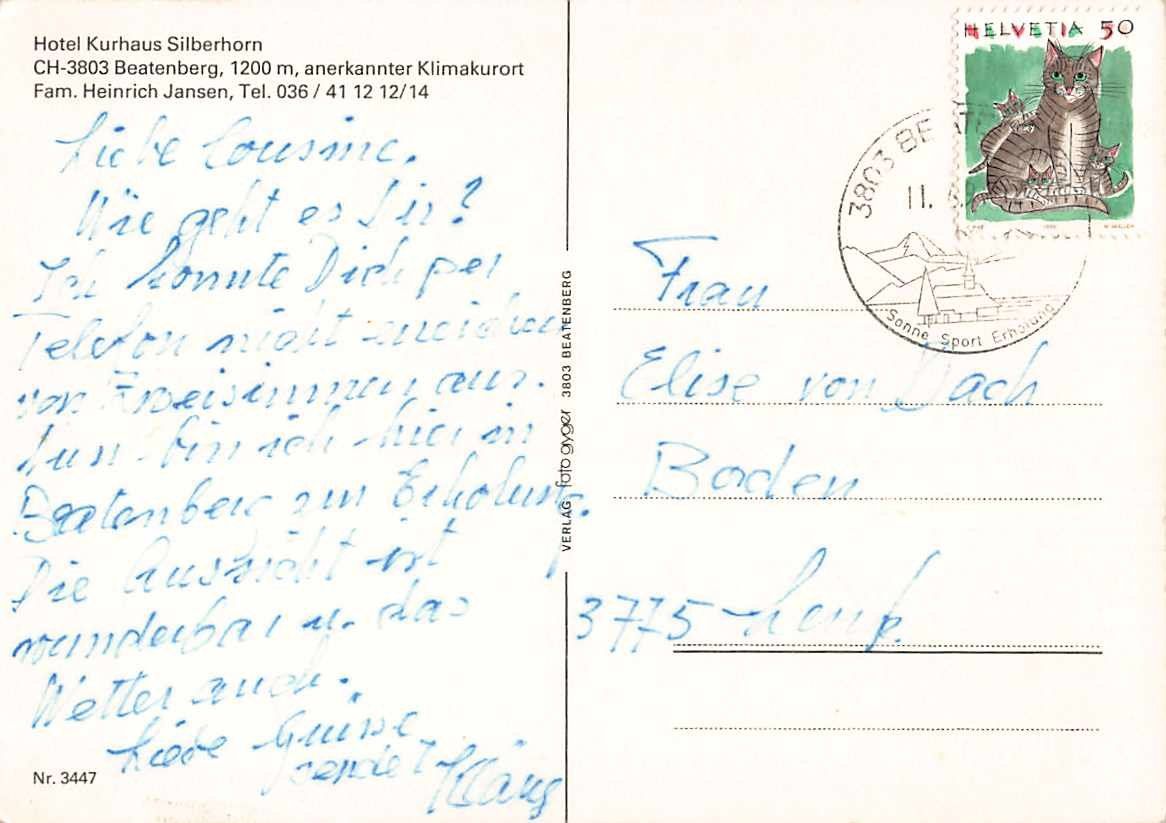 Hotel Kurhaus Silberhorn
CH-3803 Beatenberg, 1200 m, anerkannter Klimakurort
Fam. Heinrich Jansen, Tel. 036 / 41 12 12/14
Liebe Cousine.
Wie geht es Dir?
Ich konnte Dich per
Telefon nicht erreichen
von Zweisimmen aus.
Nun bin ich hier in
Beatenberg zur Erholung.
Die Aussicht ist
wunderbar u. das
Wetter auch.
Liebe Grüsse
sendet
Nr. 3447
VERLAG foto gyger 3803 BEATENBERG
HELVETIA 50
3803 BEAT
11.
Sonne Sport Erholung
Frau
Elise von Dach
Boden
3775 Lenk.